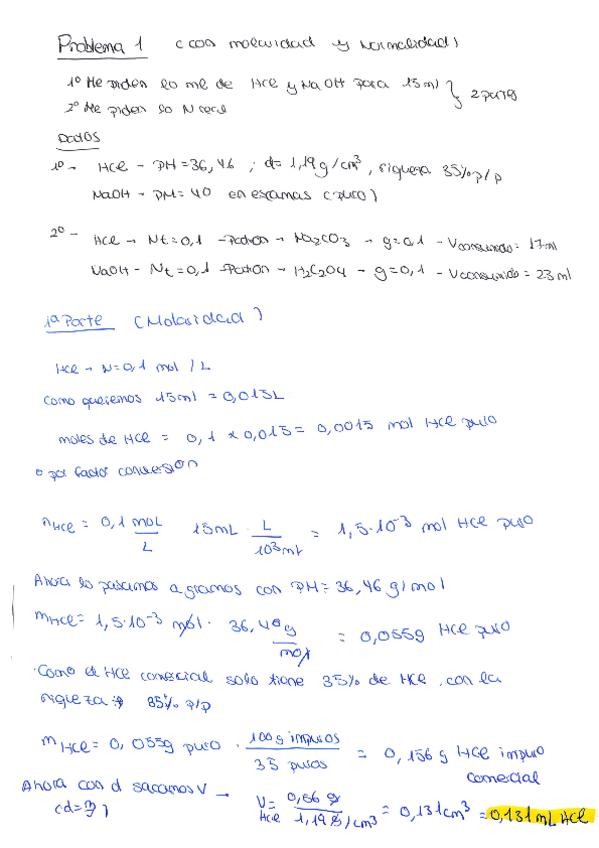 Problema 1 (con molaridad y Normalidad)
1º Me piden lo ml de HCl y NaOH para 15 ml } 2 partes
2º Me piden lo N real
Datos
1º - HCl - PM = 36,46 ; d = 1,19 g/cm³, riqueza 35% p/p
NaOH - PM = 40 en escamas (puro)
2º - HCl → Nt = 0,1 - Patrón → Na₂CO₃ → g = 0,1 - Vconsumido = 17 ml
NaOH - Nt = 0,1 - Patrón → H₂C₂O₄ → g = 0,1 - Vconsumido = 23 ml
1ª Parte (Molaridad)
HCl → N = 0,1 mol / L
Como queremos 15 ml = 0,015 L
moles de HCl = 0,1 × 0,015 = 0,0015 mol HCl puro
o por factor conversion
nHCl = 0,1 mol/L 15 mL · L/10³ ml = 1,5·10⁻³ mol HCl puro
Ahora lo pasamos a gramos con PM = 36,46 g/mol
mHCl = 1,5·10⁻³ mol · 36,40 g/mol = 0,0559 HCl puro
·Como el HCl comercial solo tiene 35% de HCl, con la
riqueza → 35% p/p
mHCl = 0,0559 puro · 100 g impuros/35 puros = 0,156 g HCl impuro
comercial
Ahora con d sacamos V →
(d = m/V)
V HCl = 0,66 g/1,19 g/cm³ = 0,131 cm³ = 0,131 mL HCl